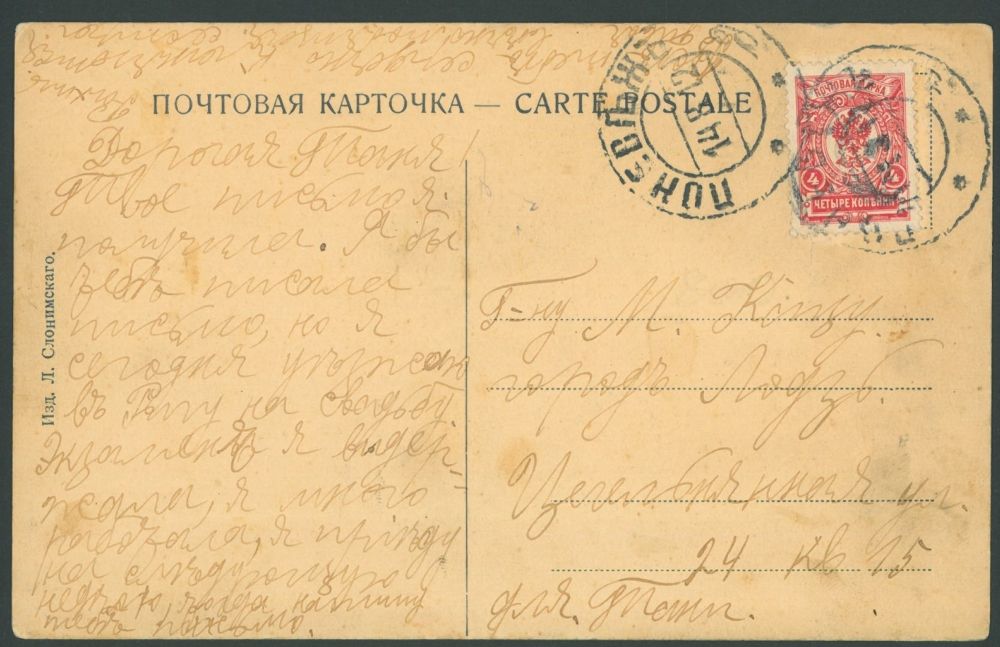 ПОЧТОВАЯ КАРТОЧКА — CARTE POSTALE
Изд. Л. Слонимскаго.
Дорогая Таня!
Твое письмо я
получила. Я бы
тебѣ писала
письмо, но я
сегодня уѣзжаю
въ Ригу на свадьбу
Экзаменъ я выдер-
жала, я много
работала, я приѣду
на слѣдующую
недѣлю, тогда напишу
тебѣ письмо.
сердечно
ПОНЕВѢЖЪ
14 8
ПОЧТОВАЯ МАРКА
4 4
ЧЕТЫРЕ КОПѢЙКИ
Г-ну М. Кацу.
городъ Лодзь.
Цегельняная ул.
24 кв 15
для Тани.